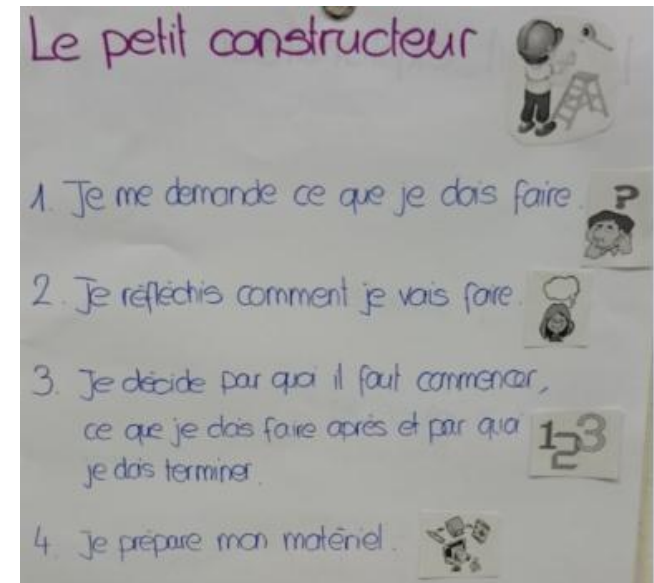 Le petit constructeur
1. Je me demande ce que je dois faire.
?
2. Je réfléchis comment je vais faire.
3. Je décide par quoi il faut commencer,
ce que je dois faire après et par quoi
123
je dois terminer.
4. Je prépare mon matériel.